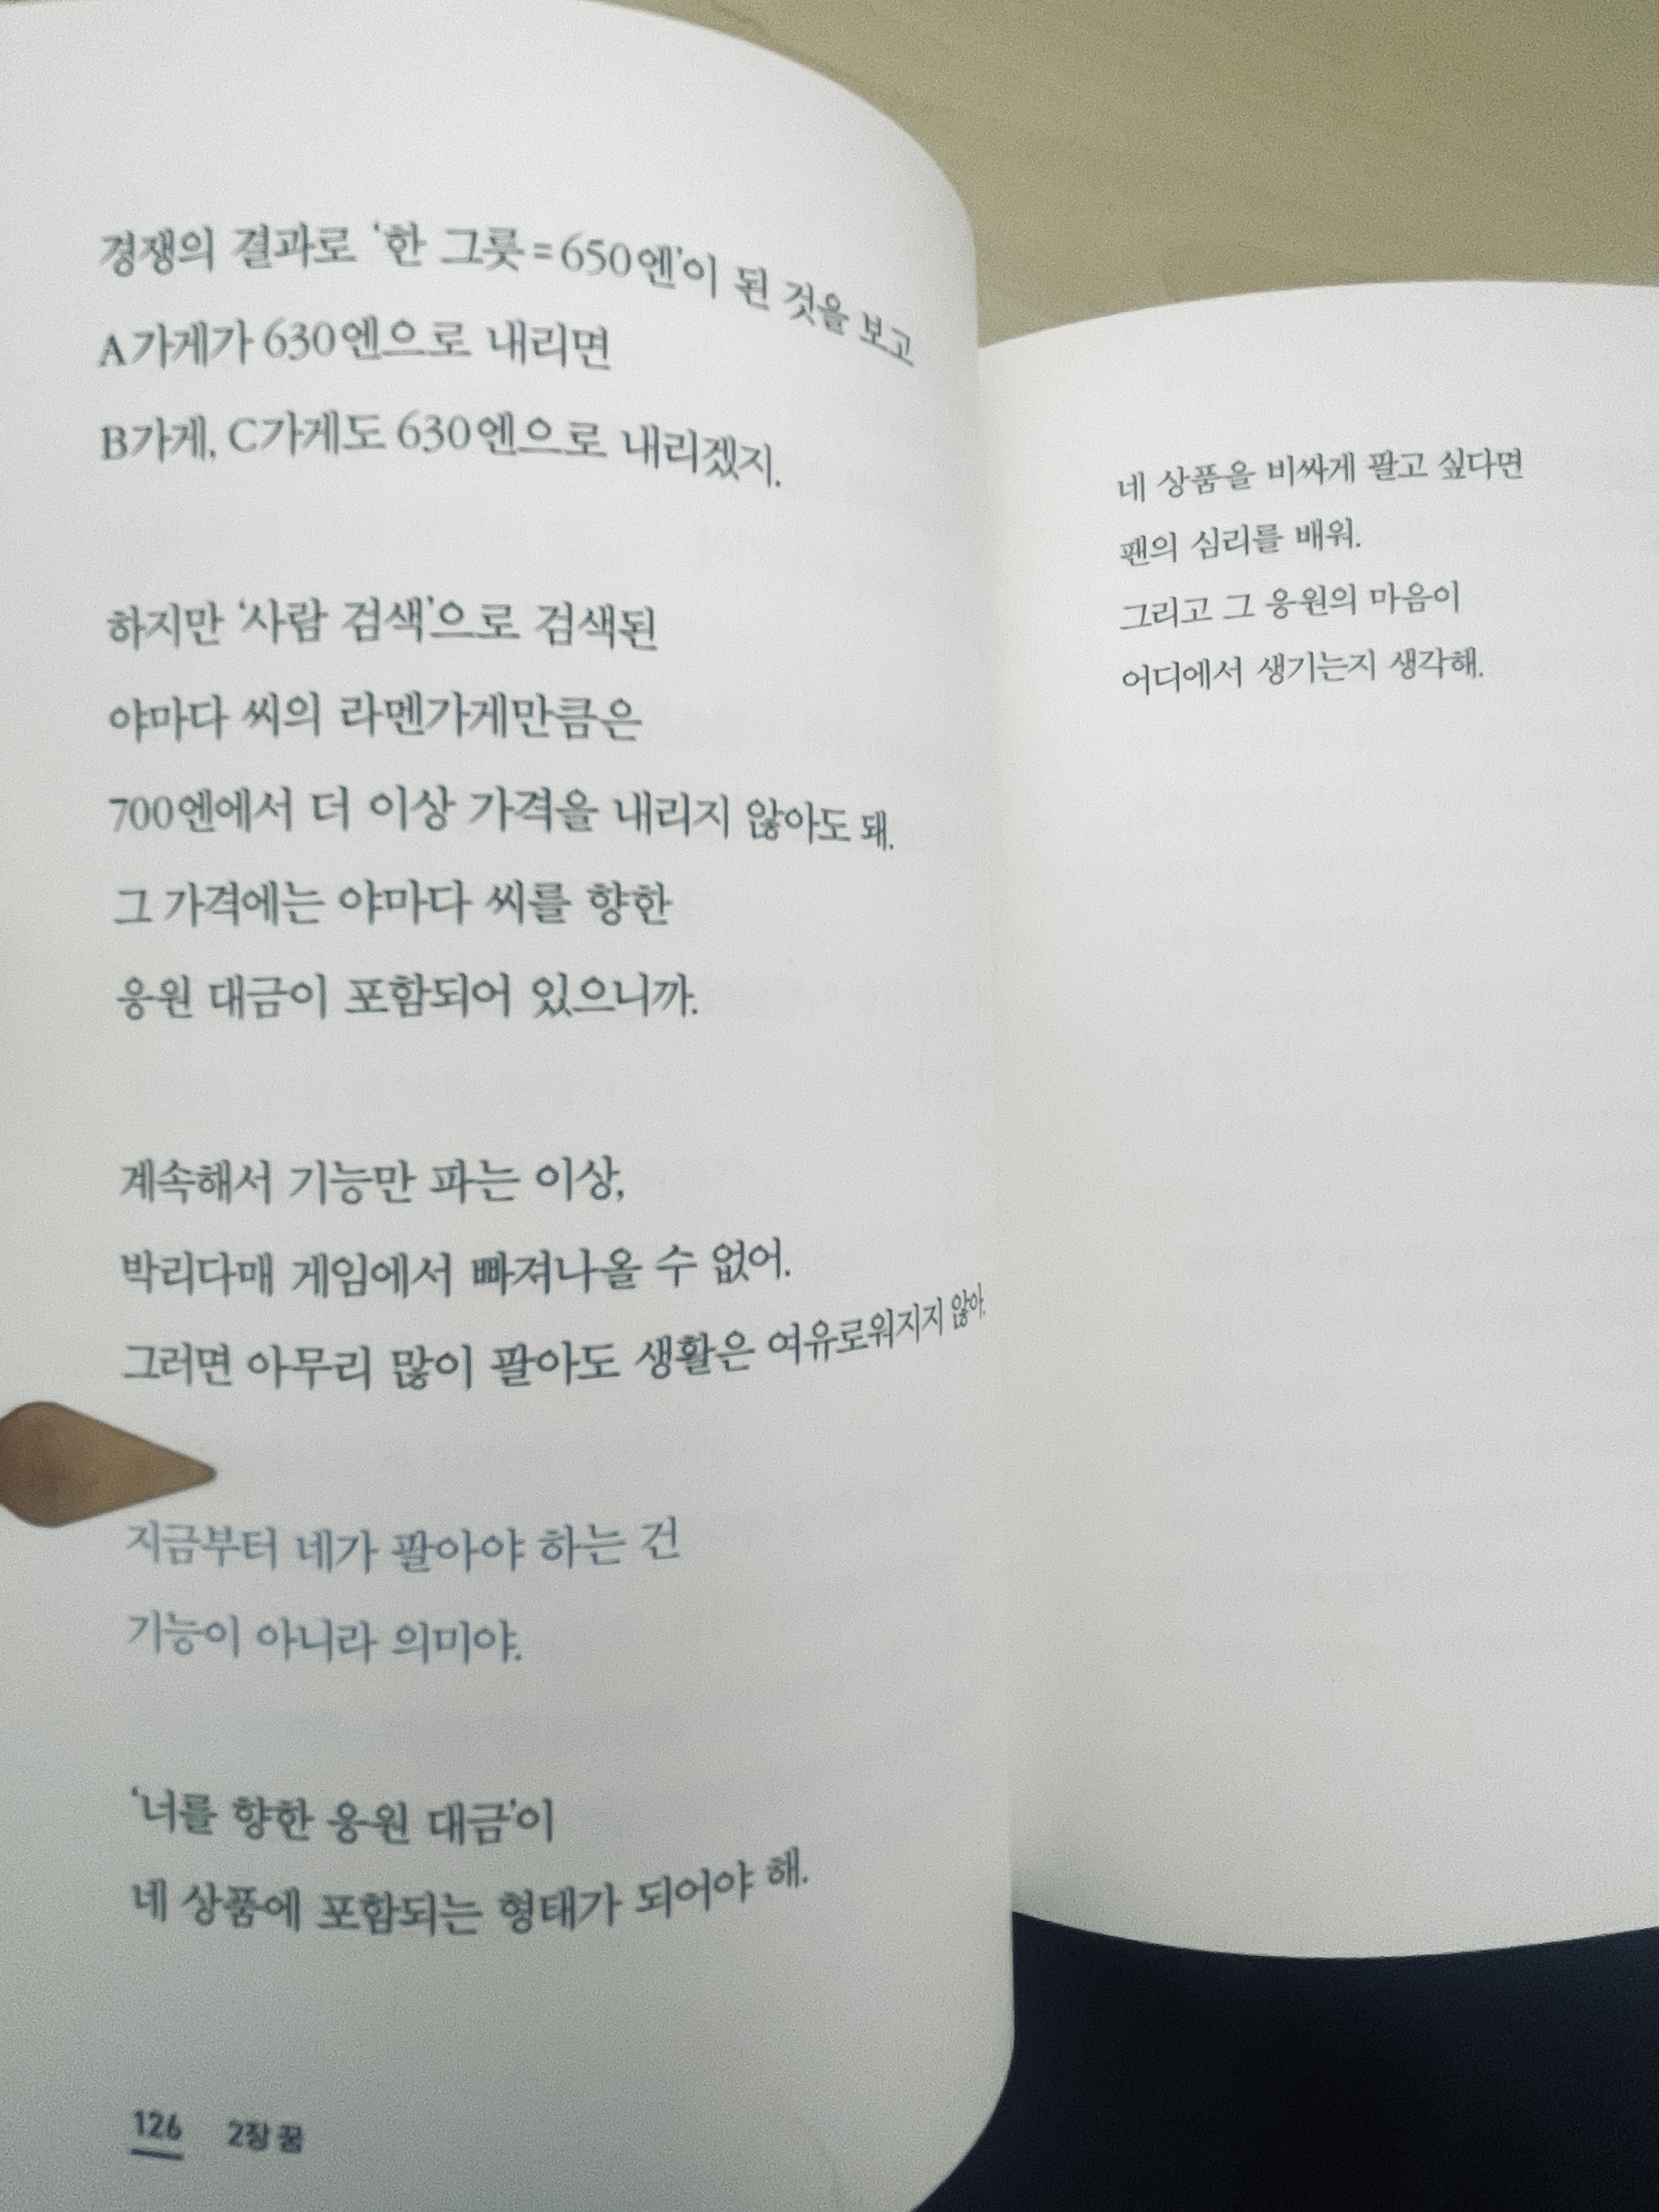 경쟁의 결과로 ‘한 그릇=650엔’이 된 것을 보고
A가게가 630엔으로 내리면
B가게, C가게도 630엔으로 내리겠지.
하지만 ‘사람 검색’으로 검색된
야마다 씨의 라멘가게만큼은
700엔에서 더 이상 가격을 내리지 않아도 돼.
그 가격에는 야마다 씨를 향한
응원 대금이 포함되어 있으니까.
계속해서 기능만 파는 이상,
박리다매 게임에서 빠져나올 수 없어.
그러면 아무리 많이 팔아도 생활은 여유로워지지 않아.
지금부터 네가 팔아야 하는 건
기능이 아니라 의미야.
‘너를 향한 응원 대금’이
네 상품에 포함되는 형태가 되어야 해.
126 2장 꿈
네 상품을 비싸게 팔고 싶다면
팬의 심리를 배워.
그리고 그 응원의 마음이
어디에서 생기는지 생각해.